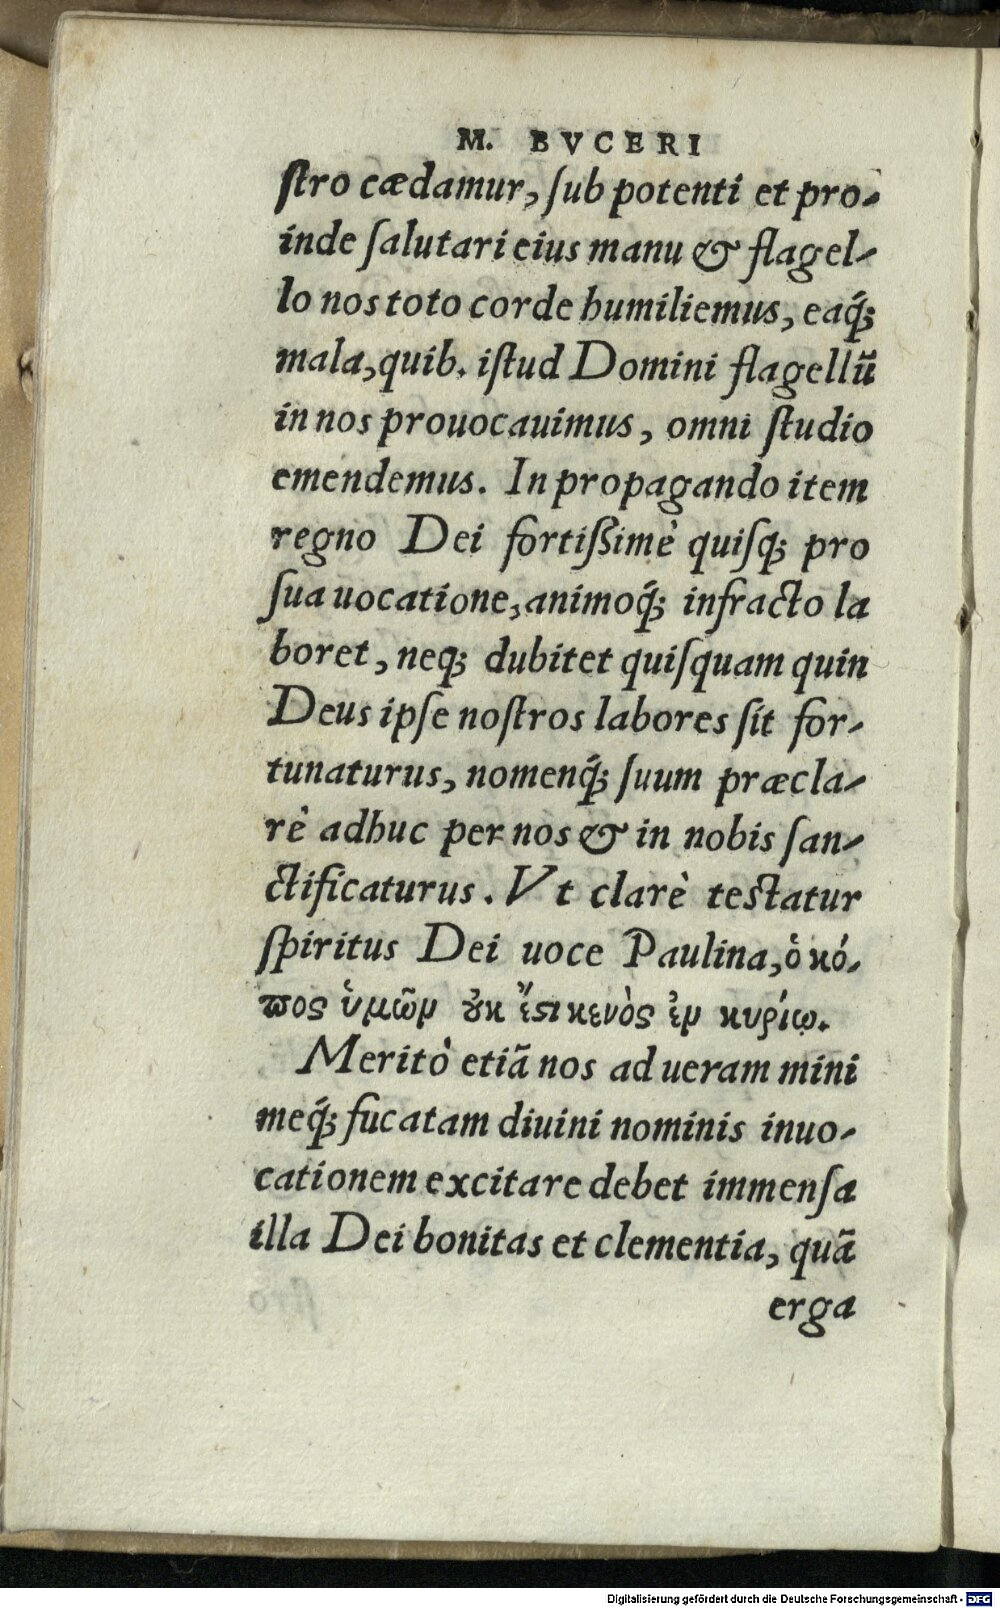 M. BVCERI
ſtro cædamur, ſub potenti et pro-
inde ſalutari eius manu & flagel-
lo nos toto corde humiliemus, eaq́;
mala, quib. iſtud Domini flagellũ
in nos prouocauimus, omni ſtudio
emendemus. In propagando item
regno Dei fortißimè quiſq; pro
ſua uocatione, animoq́; infracto la
boret, neq; dubitet quiſquam quin
Deus ipſe noſtros labores ſit for-
tunaturus, nomenq́; ſuum præcla-
rè adhuc per nos & in nobis ſan-
ctificaturus. Vt clarè testatur
ſpiritus Dei uoce Paulina, ὁ κό-
πος ὑμῶν ȣκ ἔϛι κενὸς ἐν κυρίῳ.
Meritò etiã nos ad ueram mini
meq́; fucatam diuini nominis inuo-
cationem excitare debet immenſa
illa Dei bonitas et clementia, quã
erga
Digitalisierung gefördert durch die Deutsche Forschungsgemeinschaft - DFG